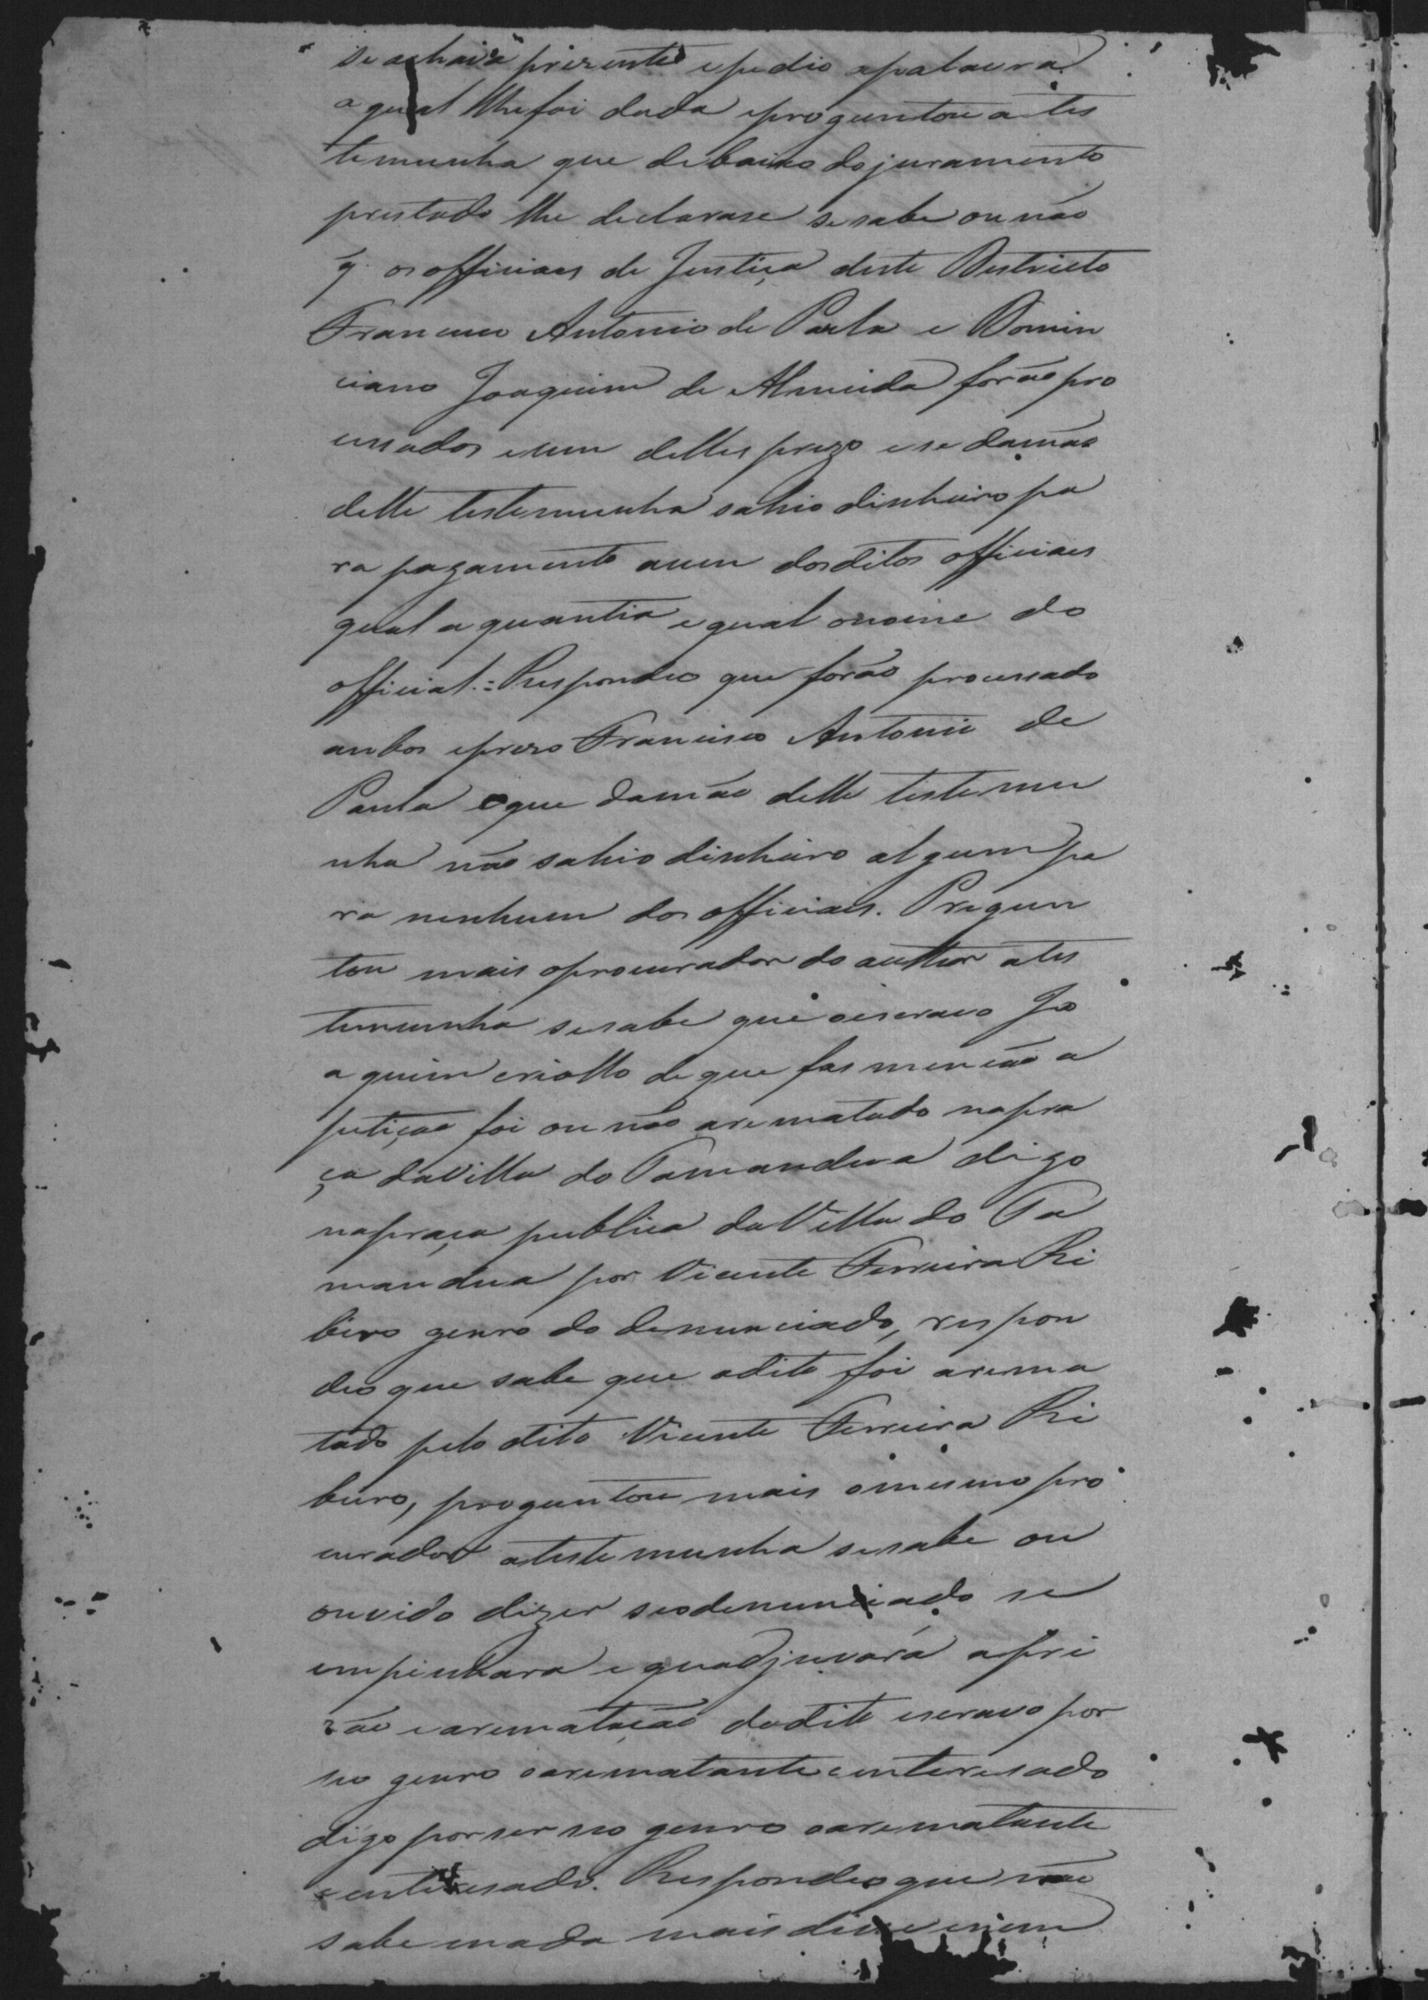 se achava prezente e pedio a palavra
a qual lhe foi dada e proguntou a tes
temunha que debaixo do juramento
prestado lhe declarase se sabe ou não
q. os officiaes de Justiça deste Destricto
Francisco Antonio de Paula e Domin
ciano Joaquim de Almeida forão pro
cessados e um delles prezo e se da mão
delle testemunha sahio dinheiro pa
ra pagamento a um dos ditos officiaes
qual a quantia e qual o nome do
official.= Respondeo que forão processado
ambos e prezo Francisco Antonio de
Paula e que da mão delle testemu
nha não sahio dinheiro algum pa
ra nenhum dos officiaes. Pregun
tou mais o procurador do author a tes
temunha se sabe que o escravo Jo
aquim criollo de que fas menção a
petiçao foi ou não arematado na pra
ça da Villa do Tamandua digo
na praça publica da Villa do Ta
mandua por Vicente Ferreira Ri
beiro genro do denunciado, respon
deo que sabe que o dito foi arema
tado pelo dito Vicente Ferreira Ri
beiro, proguntou mais o mesmo pro
curador a testemunha se sabe ou
ouvido dizer se o denunciado se
empenhara e quadjuvára a pri
zão e arematação do dito escravo por
seo genro o arematante e interesado
digo por ser seo genro o arematante
e enteresado. Respondeo que não
sabe e nada mais disse e nem